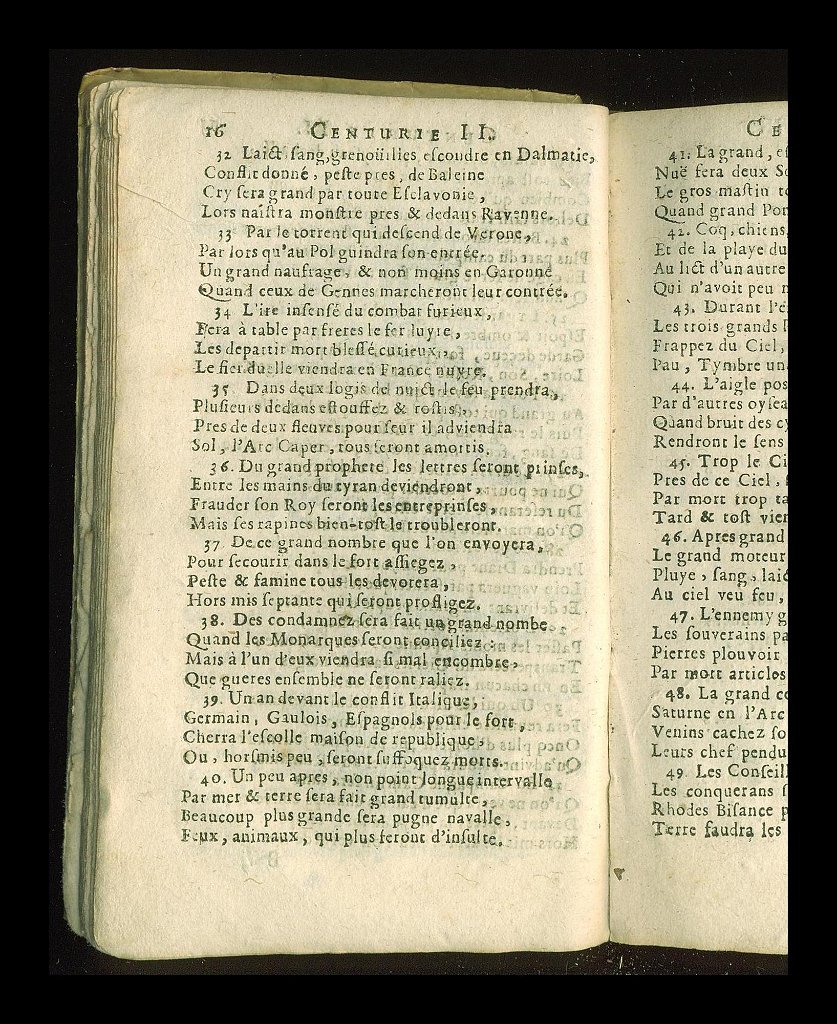 16 CENTURIE II.
32 Laict sang, grenoüilles escoudre en Dalmatie,
Conflit donné, peste pres, de Baleine
Cry sera grand par toute Esclavonie,
Lors naistra monstre pres & dedans Ravenne.
33 Par le torrent qui descend de Verone,
Par lors qu'au Pol guindra son entrée.
Un grand naufrage, & non moins en Garonne
Quand ceux de Gennes marcheront leur contrée.
34 L'ire insensé du combat furieux,
Fera à table par freres le fer luyre,
Les departir mort blessé curieux,
Le fier duelle viendra en France nuyre.
35 Dans deux logis de nuict le feu prendra,
Plusieurs dedans estouffez & rostis,
Pres de deux fleuves pour seur il adviendra
Sol, l'Arc Caper, tous seront amortis.
36. Du grand prophete les lettres seront prinses,
Entre les mains du tyran deviendront,
Frauder son Roy seront les entreprinses,
Mais ses rapines bien-tost le troubleront.
37 De ce grand nombre que l'on envoyera,
Pour secourir dans le fort assiegez,
Peste & famine tous les devorera,
Hors mis septante qui seront profligez.
38. Des condamnez sera fait un grand nombe
Quand les Monarques seront conciliez:
Mais à l'un d'eux viendra si mal encombre,
Que gueres ensemble ne seront raliez.
39. Un an devant le conflit Italique,
Germain, Gaulois, Espagnols pour le fort,
Cherra l'escolle maison de republique,
Ou, horsmis peu, seront suffoquez morts.
40. Un peu apres, non point longue intervalle
Par mer & terre sera fait grand tumulte,
Beaucoup plus grande sera pugne navalle,
Feux, animaux, qui plus feront d'insulte.
CE
41. La grand, es
Nuë sera deux So
Le gros mastin to
Quand grand Pon
42. Coq, chiens
Et de la playe du
Au lict d'un autre
Qui n'avoit peu
43. Durant l'e
Les trois grands
Frappez du Ciel,
Pau, Tymbre un
44. L'aigle pos
Par d'autres oysea
Quand bruit des cy
Rendront le sens
45. Trop le Ci
Pres de ce Ciel,
Par mort trop ta
Tard & tost vien
46. Apres grand
Le grand moteur
Pluye, sang, laic
Au ciel veu feu,
47. L'ennemy g
Les souverains pa
Pierres plouvoir
Par mort articles
48. La grand co
Saturne en l'Arc
Venins cachez so
Leurs chef pendu
49 Les Conseill
Les conquerans s
Rhodes Bisance p
Terre faudra les